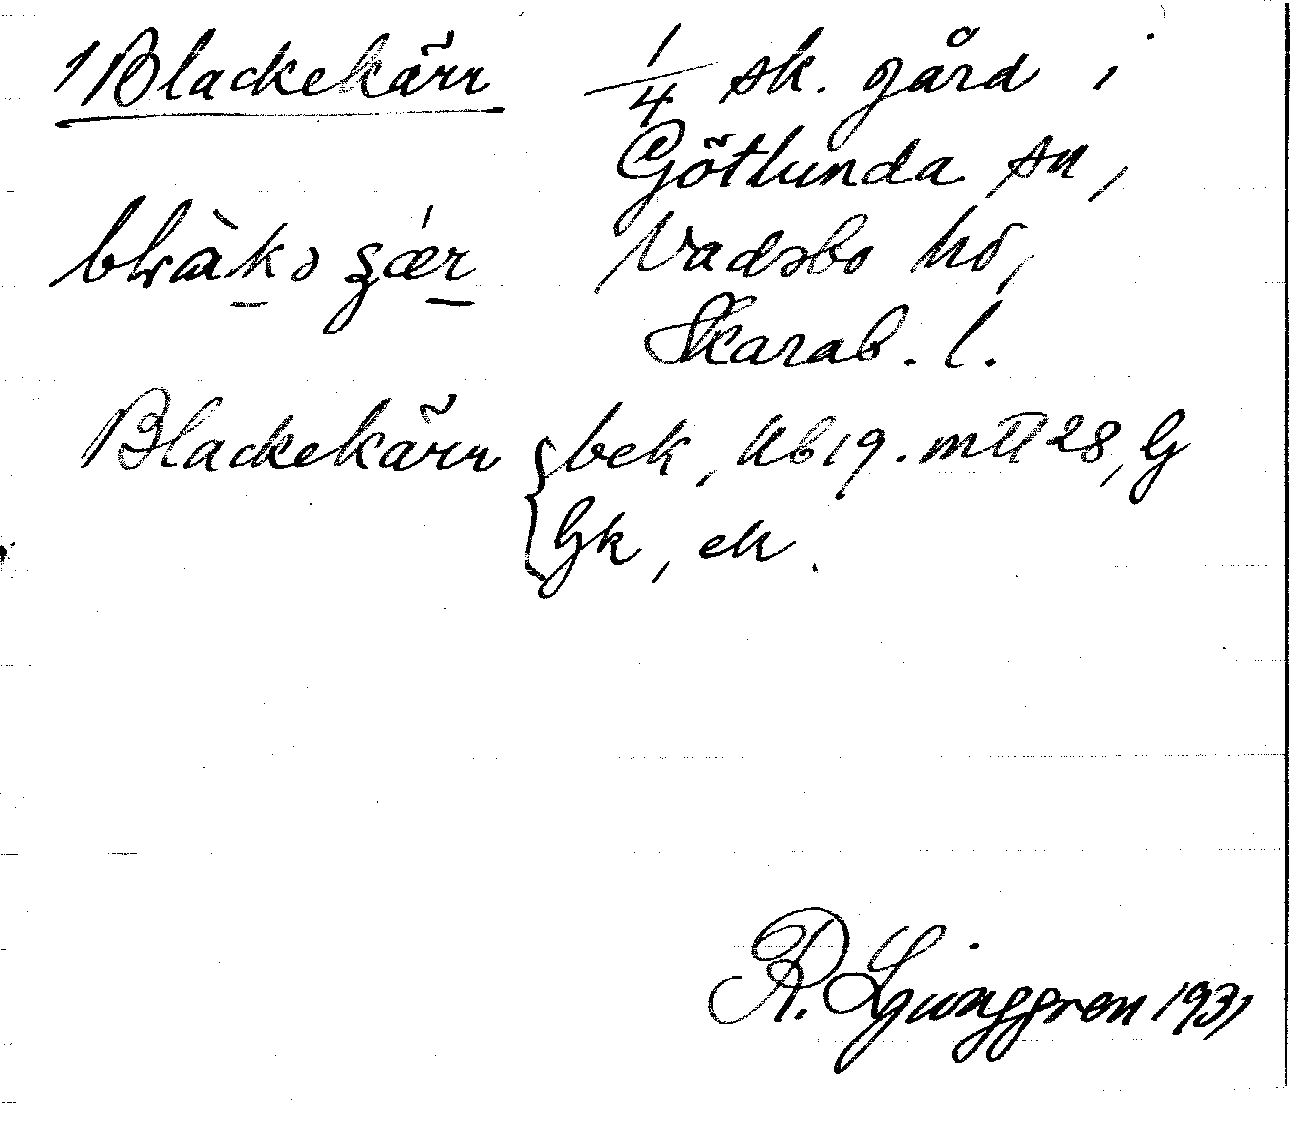 1 Blackekärr 1/4 sk. gård i
Götlunda sn,
Vadsbo hd,
Skarab. l.
Blackekärr { bek, Ub 19. mtl 28, G
Gk, ek.
R. Ljunggren 1931